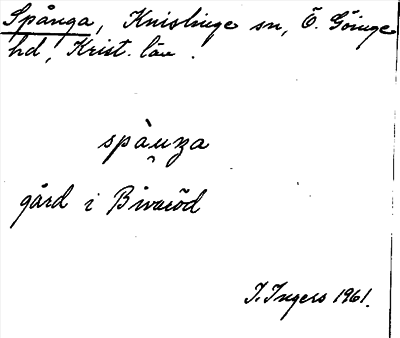 Spånga, Knislinge sn, Ö. Göinge
hd, Krist. län.
gård i Bivaröd
I. Ingers 1961.